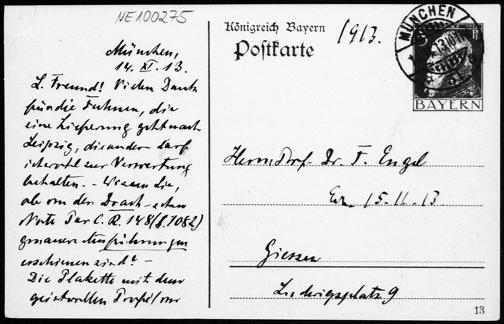 NE100275
München,
14. XI. 13.
L. Freund! Vielen Dank
für die Fahnen, die
eine Lieferung geht nach
Leipzig, die andere darf
ich wohl zur Verwertung
behalten. – Wissen Sie,
ob von der
Note Par C. R. 148 (S. 1082)
genauere Ausführungen
erschienen sind? –
Die Plakette mit dem
geistvollen Profil von
Königreich Bayern
Postkarte
1913.
MÜNCHEN
BAYERN
Herrn Prof. Dr. F. Engel
15.11.13
Giessen
Ludwigsplatz 9
13